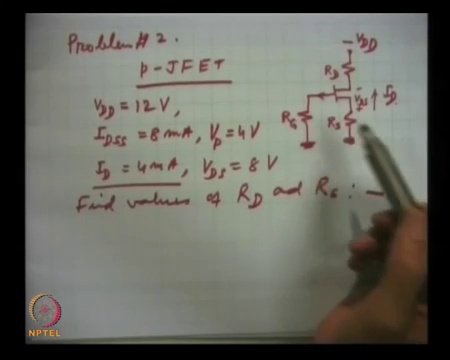 Problem # 2.
p-JFET
VDD = 12 V,
IDSS = 8 mA, Vp = 4 V
ID = 4 mA, VDS = 8 V
Find values of RD ad RS : —
- VDD
RD
- VDS +
ID
RG
RS
NPTEL